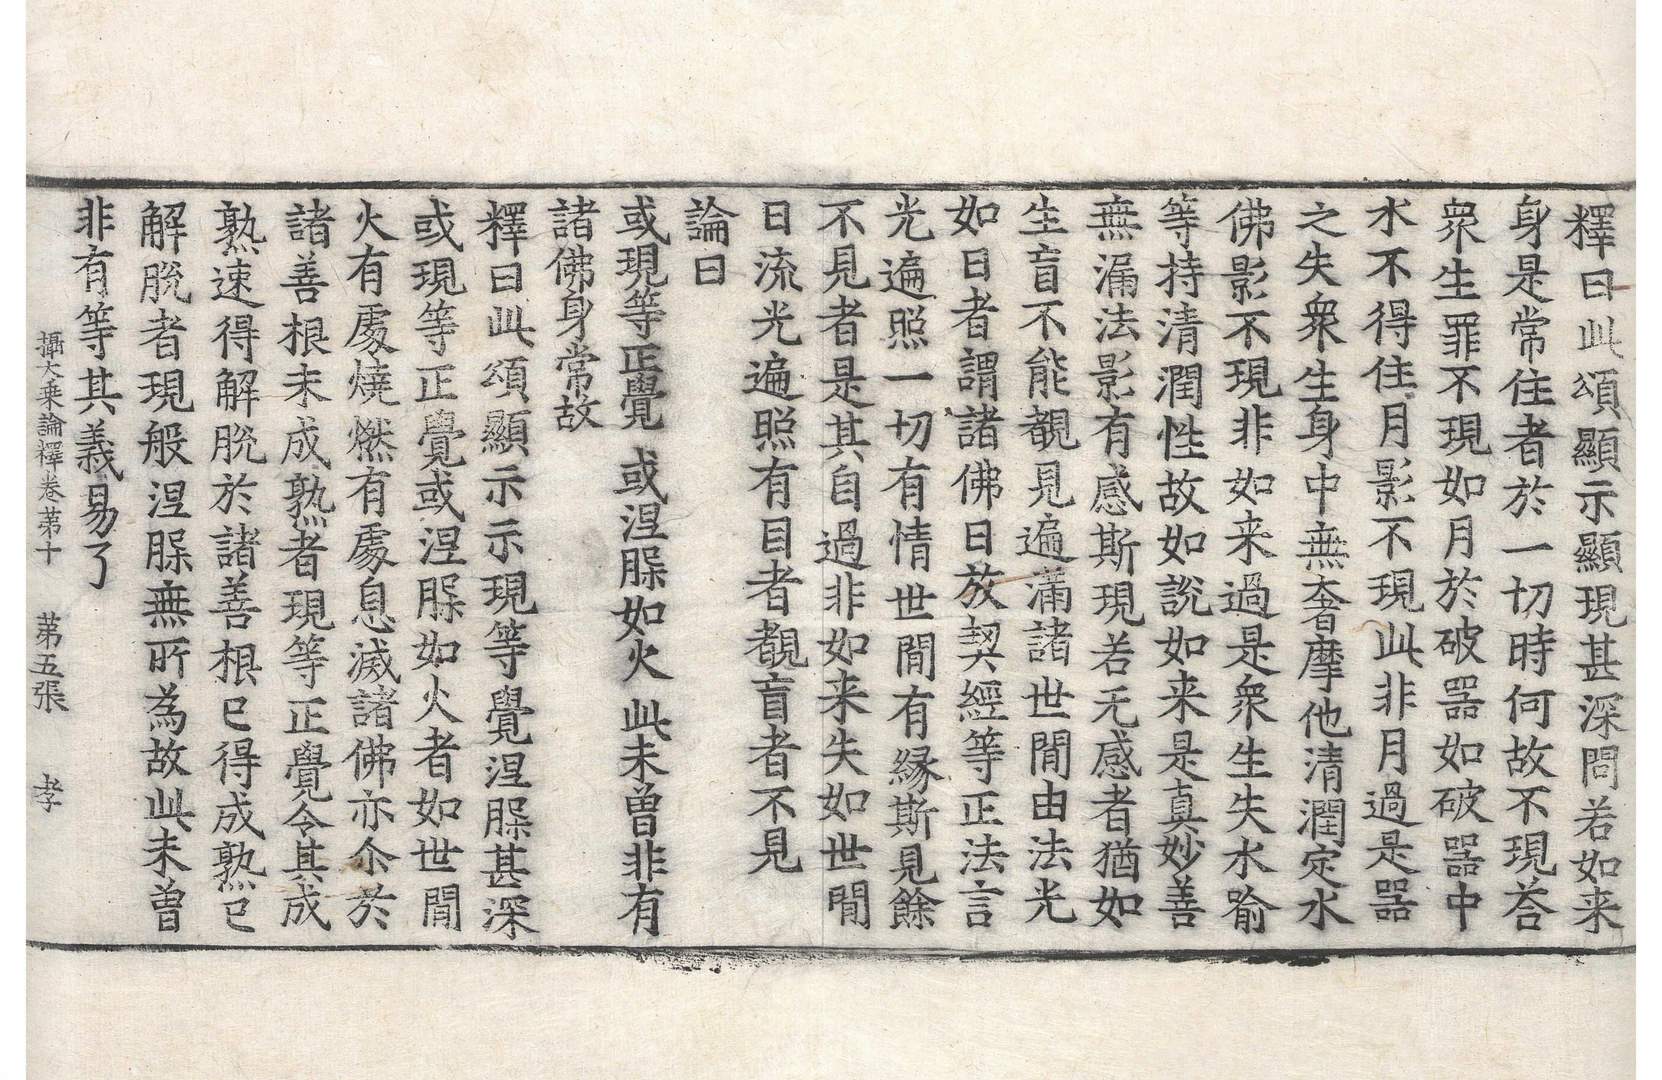 釋曰此頌顯示顯現甚深問若如来
身是常住者於一切時何故不現荅
衆生罪不現如月於破器如破器中
水不得住月影不現此非月過是器
之失衆生身中無奢摩他清潤定水
佛影不現非如来過是衆生失水喻
等持清潤性故如説如来是真妙善
無漏法影有感斯現若无感者猶如
生盲不能覩見遍滿諸世間由法光
如日者謂諸佛日放契經等正法言
光遍照一切有情世間有縁斯見餘
不見者是其自過非如来失如世間
日流光遍照有目者覩盲者不見
論曰
或現等正覺　或涅槃如火　此未曾非有
諸佛身常故
釋曰此頌顯示示現等覺涅槃甚深
或現等正覺或涅槃如火者如世間
火有處燒燃有處息滅諸佛亦尒於
諸善根未成熟者現等正覺令其成
熟速得解脫於諸善根已得成熟已
解脫者現般涅槃無所為故此未曾
非有等其義易了
攝大乗論釋卷苐十　苐五張　孝